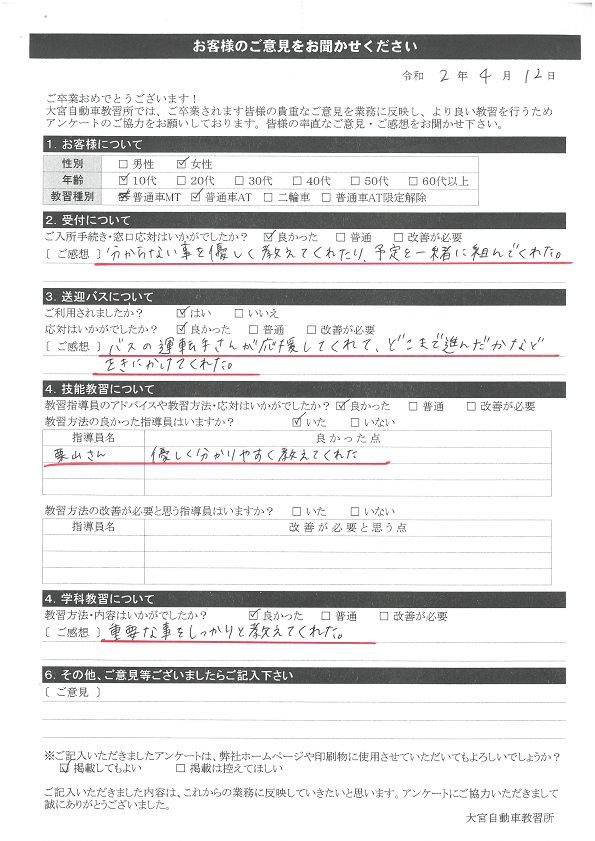 お客様のご意見をお聞かせください
令和 2 年 4 月 12 日
ご卒業おめでとうございます！
大宮自動車教習所では、ご卒業されます皆様の貴重なご意見を業務に反映し、より良い教習を行うため
アンケートのご協力をお願いしております。皆様の率直なご意見・ご感想をお聞かせ下さい。
1. お客様について
性別 □ 男性 ☑ 女性
年齢 ☑ 10代 □ 20代 □ 30代 □ 40代 □ 50代 □ 60代以上
教習種別 ☑ 普通車MT ☑ 普通車AT □ 二輪車 □ 普通車AT限定解除
2. 受付について
ご入所手続き・窓口応対はいかがでしたか？ ☑ 良かった □ 普通 □ 改善が必要
［ ご感想 ］ 分からない事を優しく教えてくれたり、予定を一緒に組んでくれた。
3. 送迎バスについて
ご利用されましたか？ ☑ はい □ いいえ
応対はいかがでしたか？ ☑ 良かった □ 普通 □ 改善が必要
［ ご感想 ］ バスの運転手さんが応援してくれて、どこまで進んだかなど
をきにかけてくれた。
4. 技能教習について
教習指導員のアドバイスや教習方法・応対はいかがでしたか？ ☑ 良かった □ 普通 □ 改善が必要
教習方法の良かった指導員はいますか？ ☑ いた □ いない
指導員名 良かった点
栗山さん 優しく分かりやすく教えてくれた
教習方法の改善が必要と思う指導員はいますか？ □ いた □ いない
指導員名 改善が必要と思う点
4. 学科教習について
教習方法・内容はいかがでしたか？ ☑ 良かった □ 普通 □ 改善が必要
［ ご感想 ］ 重要な事をしっかりと教えてくれた。
6. その他、ご意見等ございましたらご記入下さい
［ ご意見 ］
※ご記入いただきましたアンケートは、弊社ホームページや印刷物に使用させていただいてもよろしいでしょうか？
☑ 掲載してもよい □ 掲載は控えてほしい
ご記入いただきました内容は、これからの業務に反映していきたいと思います。アンケートにご協力いただきまして
誠にありがとうございました。
大宮自動車教習所